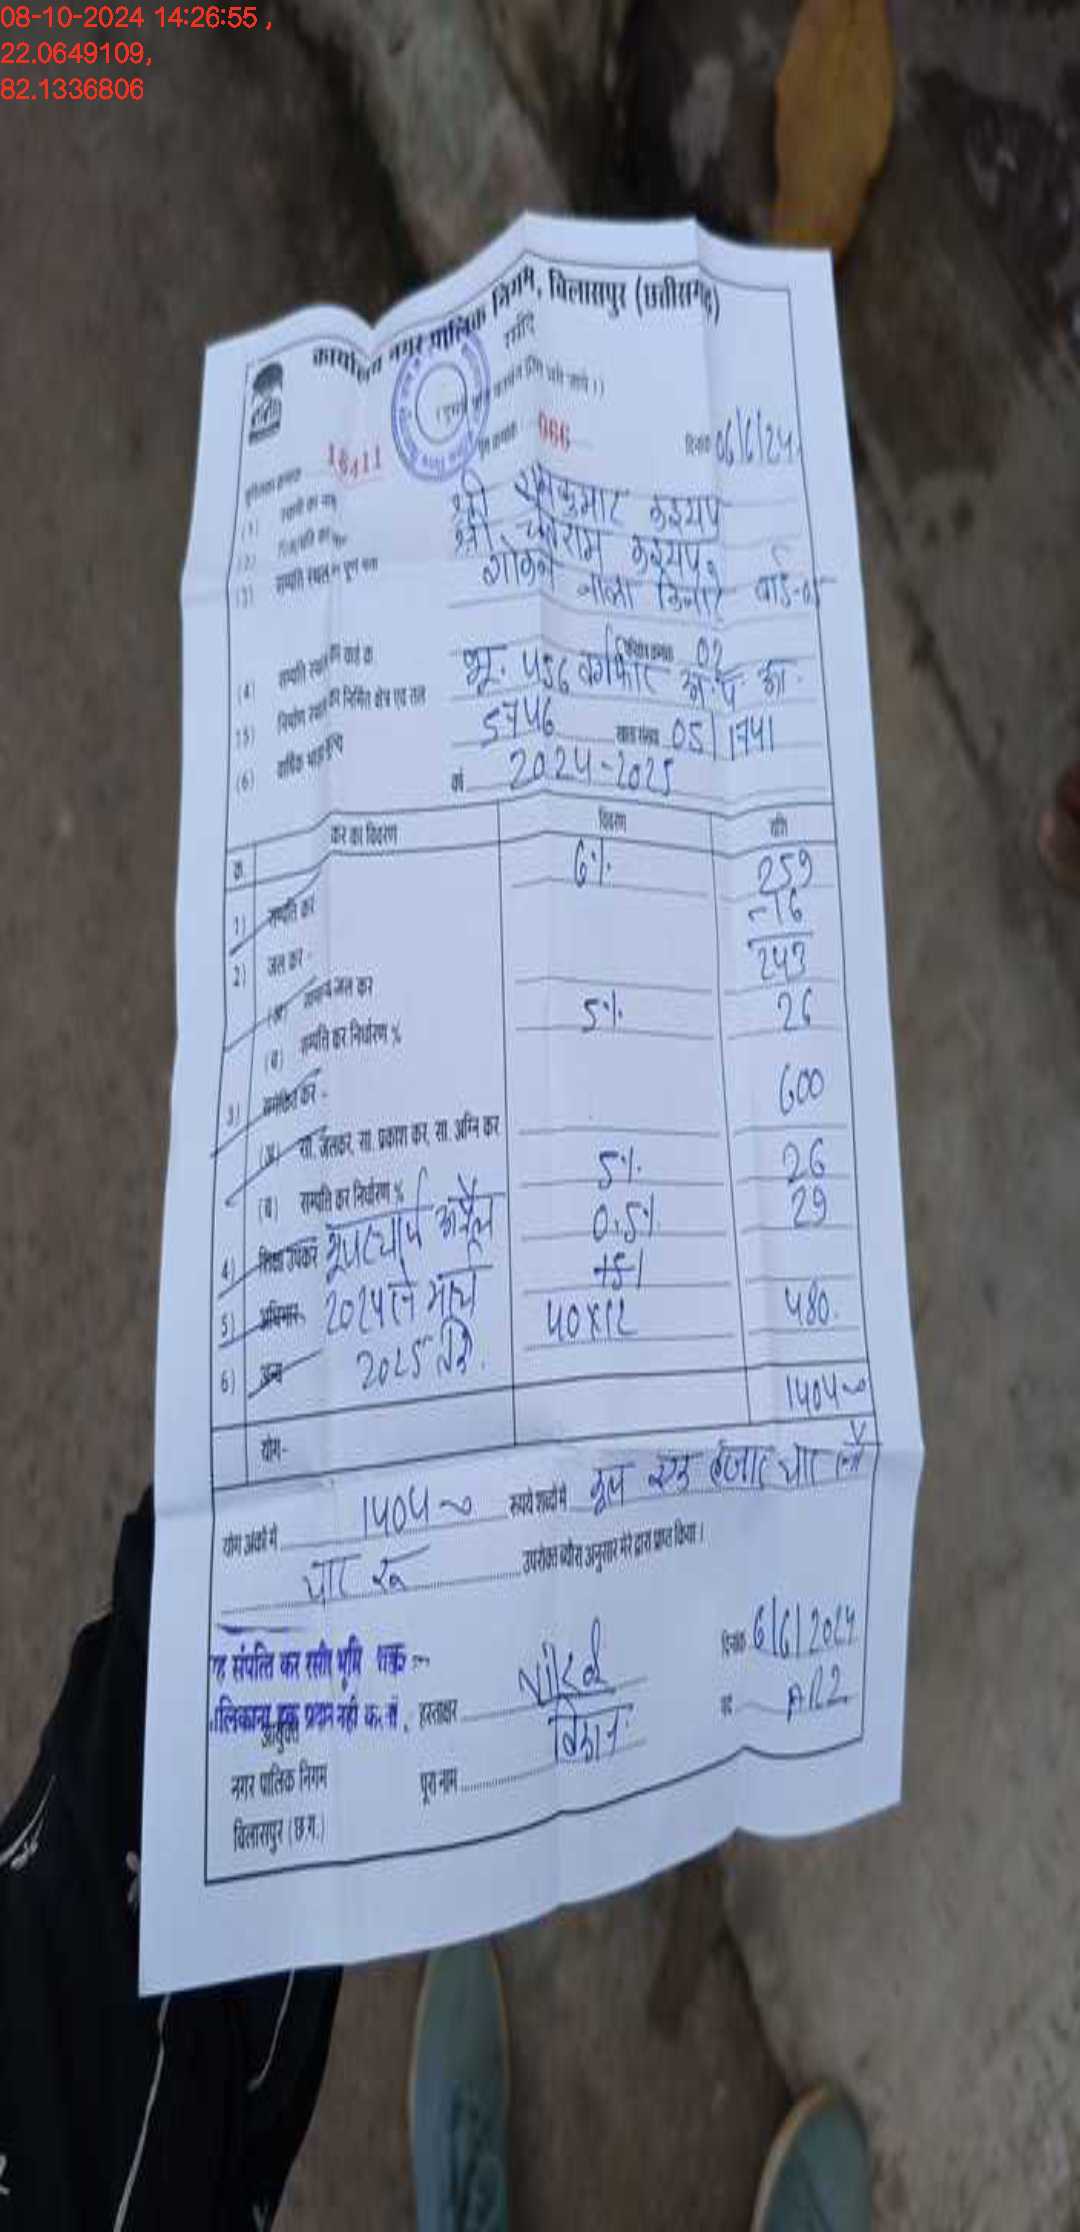 08-10-2024 14:26:55 ,
22.0649109,
82.1336806
कार्यालय नगर पालिक निगम, बिलासपुर (छत्तीसगढ़)
रसीद
16411 066 दिनांक 06/6/24
(1) स्वामी का नाम श्री रामकुमार कश्यप
(2) श्री राम कश्यप
(3) सम्पत्ति स्थल का पूर्ण पता नाला किनारे वार्ड-05
(4) सम्पत्ति स्थल का वार्ड क्र 02
(5) निर्माण स्थल का निर्मित क्षेत्र एवं दर भू. 456 वर्गफीट
(6) वार्षिक भाड़ा मूल्य 5746 05/1741
वर्ष 2024-2025
क्र. कर का विवरण विवरण राशि
1) सम्पत्ति कर 6% 259
-16
243
2) जल कर -
(अ) सामान्य जल कर
(ब) सम्पत्ति कर निर्धारण % 5% 26
3) समेकित कर - 600
(अ) सा. जलकर, सा. प्रकाश कर, सा. अग्नि कर
(ब) सम्पत्ति कर निर्धारण % 5% 26
4) शिक्षा उपकर अप्रैल 0.5% 29
5) अधिभार 2024 से मार्च
6) अन्य 2025 40x12 480.
योग- 1404
योग अंको में 1404 रूपये शब्दों में कुल एक हजार चार सौ
चार रू उपरोक्त ब्यौरा अनुसार मेरे द्वारा प्राप्त किया।
यह संपत्ति कर रसीद भूमि दिनांक 6/6/2024
मालिकाना हक प्रदान नही करता, हस्ताक्षर पद AR2
आयुक्त
नगर पालिक निगम पूरा नाम
बिलासपुर (छ.ग.)